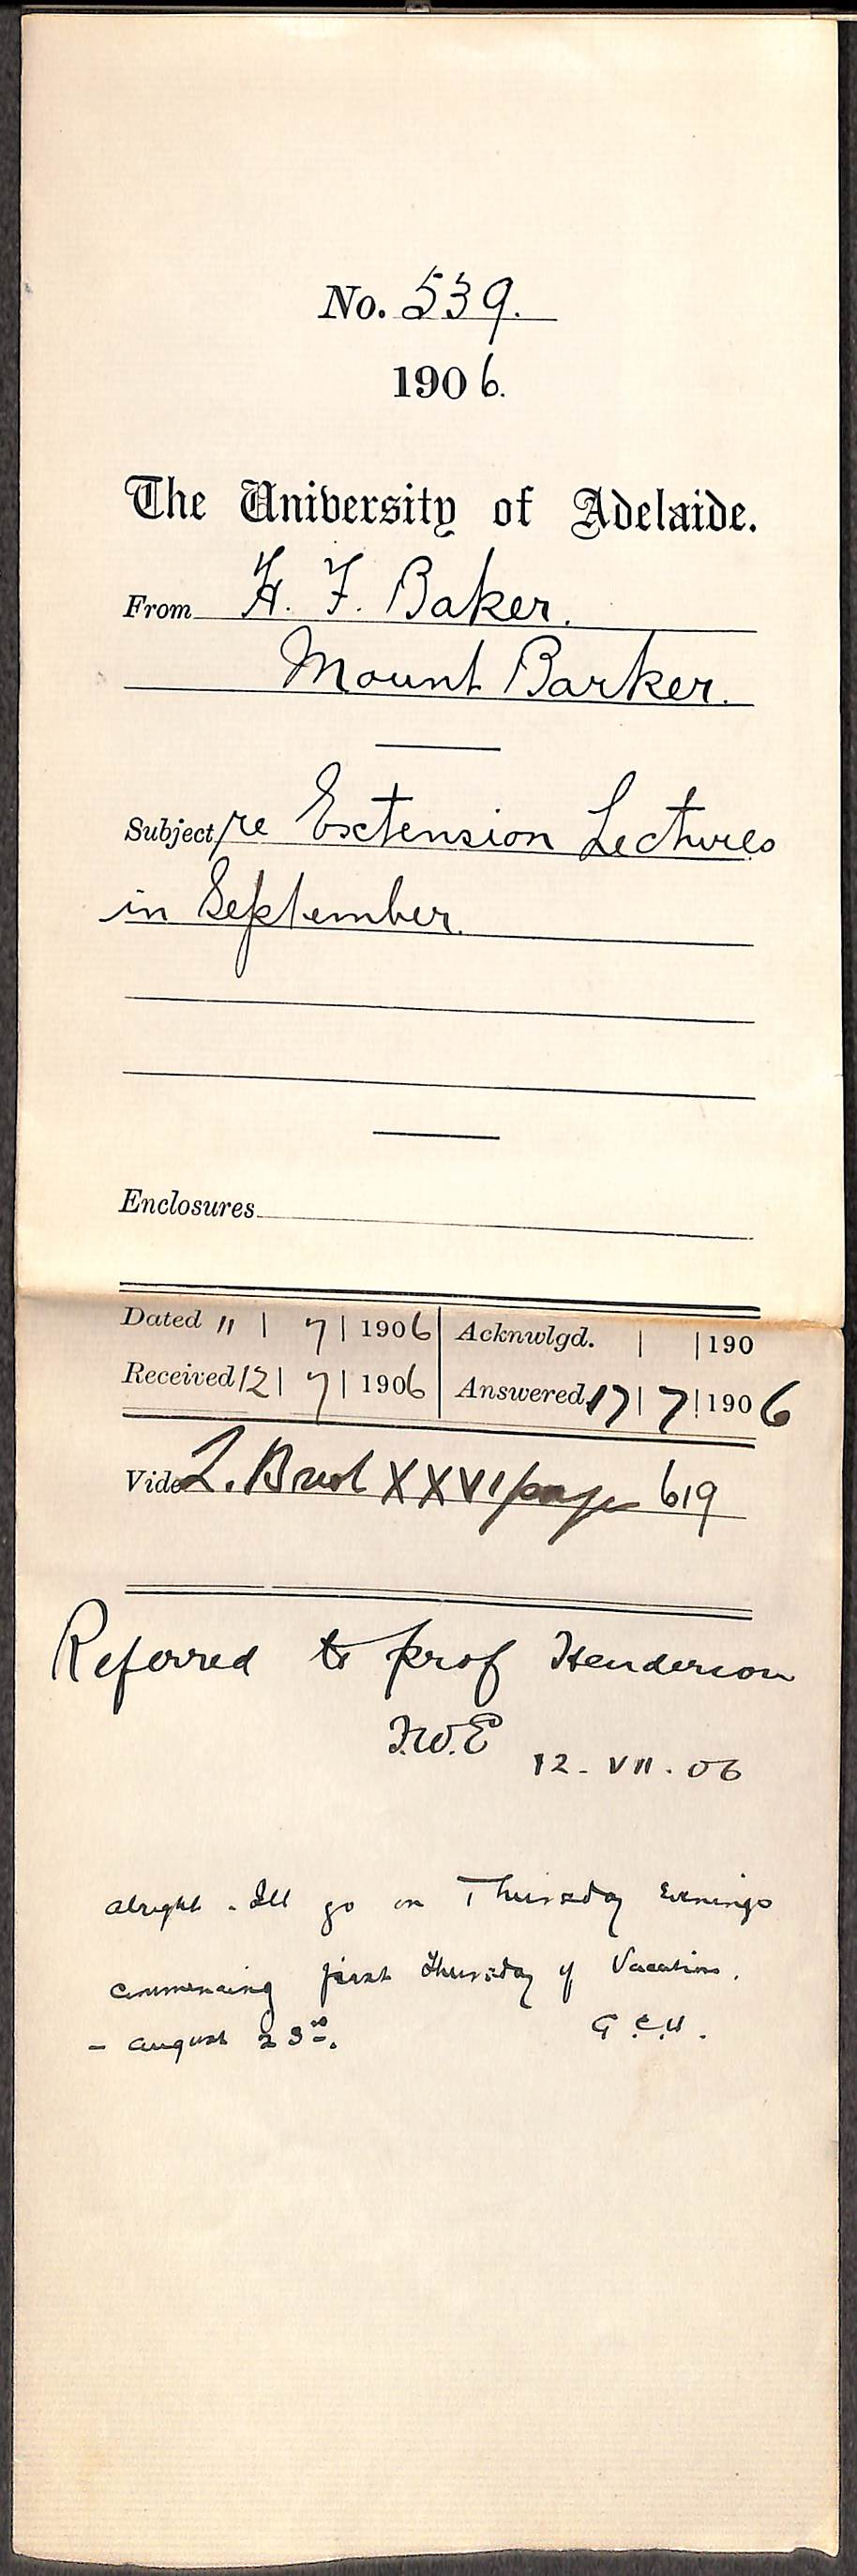 No. 539.
1906.
The University of Adelaide.
From H. F. Baker.
Mount Barker.
Subject re Extension Lectures
in September.
Enclosures
Dated 11 | 7 | 1906 Acknwlgd. | | 190
Received 12 | 7 | 1906 Answered 17 | 7 | 1906
Vide L. Book XXVI page 619
Referred to prof Henderson
12-VII.06
alright. I'll go on Thursday Evenings
commencing first Thursday of Vacation.
- august 23rd. G.C.H.